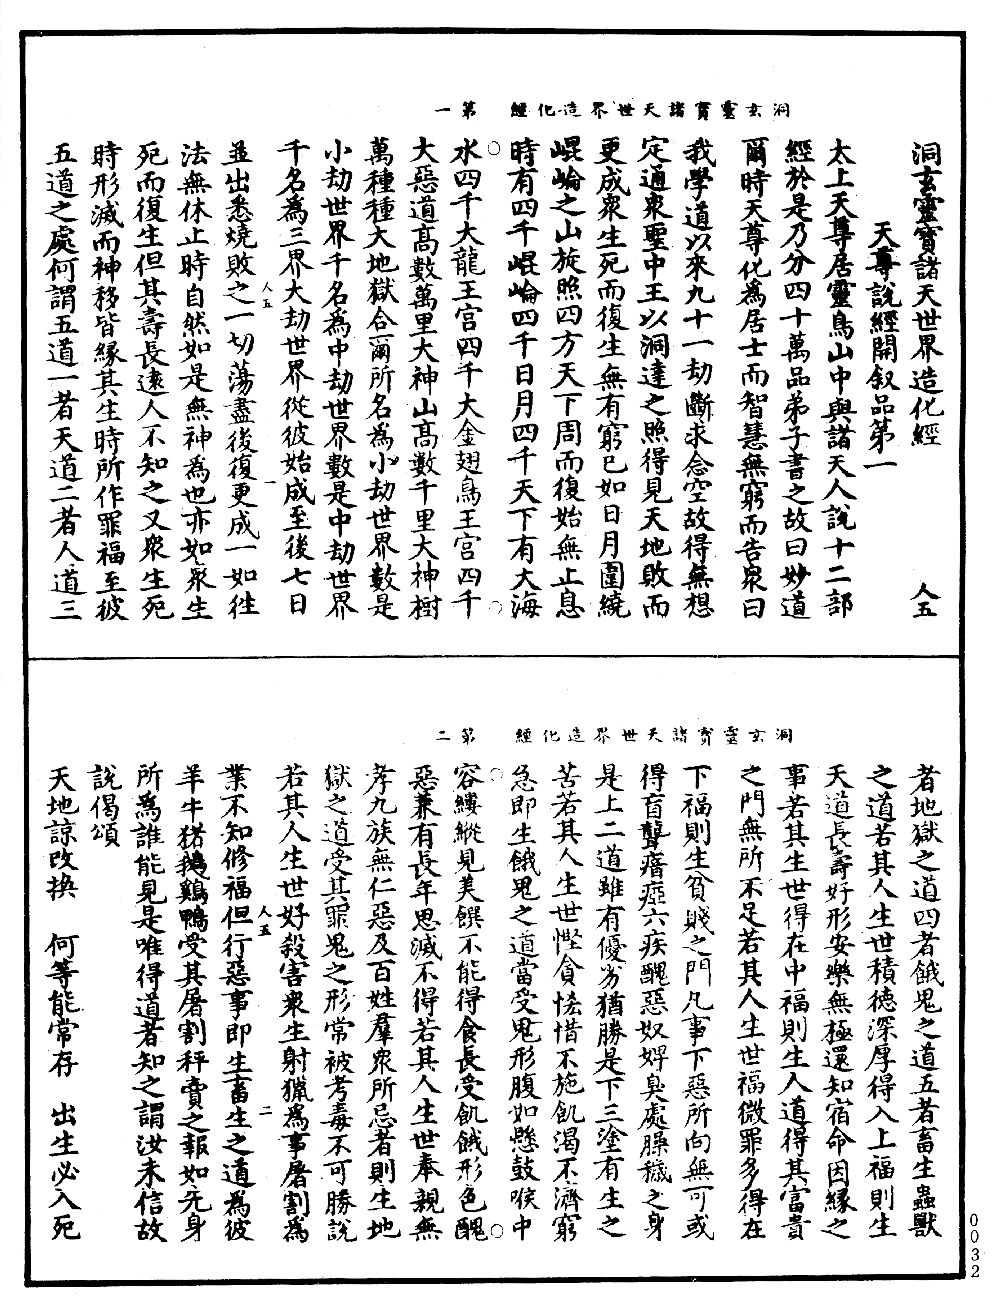 洞玄靈寶諸天世界造化經　第一
洞玄靈寶諸天世界造化經　人五
天尊說經開叙品第一
太上天尊居靈鳥山中與諸天人說十二部
經於是乃分四十萬品弟子書之故曰妙道
爾時天尊化為居士而智慧無窮而告衆曰
我學道以來九十一劫斷求念空故得無想
定通衆聖中王以洞達之照得見天地敗而
更成衆生死而復生無有窮已如日月圍繞
崐崘之山旋照四方天下周而復始無止息
時有四千崐崘四千日月四千天下有大海
水四千大龍王宫四千大金翅鳥王宮四千
大惡道髙數萬里大神山髙數千里大神樹
萬種種大地獄合爾所名為小劫世界數是
小劫世界千名為中劫世界數是中劫世界
千名為三界大劫世界從彼始成至後七日
人五　一
並出悉燒敗之一切蕩盡後復更成一如徃
法無休止時自然如是無神為也亦如衆生
死而復生但其壽長遠人不知之又衆生死
時形滅而神移皆緣其生時所作罪福至彼
五道之處何謂五道一者天道二者人道三
洞玄靈寶諸天世界造化經　第二
者地獄之道四者餓鬼之道五者畜生蟲獸
之道若其人生世積德深厚得入上福則生
天道長壽好形安樂無極還知宿命因緣之
事若其生世得在中福則生人道得其富貴
之門無所不足若其人生世福微罪多得在
下福則生貧賤之門凡事下惡所向無可或
得盲聾瘖瘂六疾醜惡奴婢臭處臊穢之身
是上二道雖有優劣猶勝是下三塗有生之
苦若其人生世慳貪悋惜不施飢渴不濟窮
急即生餓鬼之道當受鬼形腹如懸鼓喉中
容縷縱見美饌不能得食長受飢餓形色醜
惡兼有長年思滅不得若其人生世奉親無
孝九族無仁惡及百姓羣衆所忌者則生地
獄之道受其罪鬼之形常被考毒不可勝說
若其人生世好殺害衆生射獵為事屠割為
人五　二
業不知修福但行惡事即生畜生之道為彼
羊牛猪鵝鷄鴨受其屠割秤賣之報如先身
所為誰能見是唯得道者知之謂汝未信故
說偈頌
天地諒改換　何等能常存　出生必入死
0032